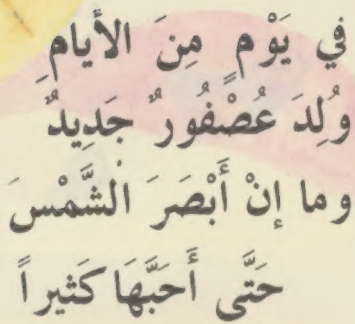 في يَوْمٍ مِنَ الأيامِ
وُلِدَ عُصْفُورٌ جَدِيدٌ
وما إنْ أَبْصَرَ الْشَّمْسَ
حَتَّى أَحَبَّهَا كَثيراً